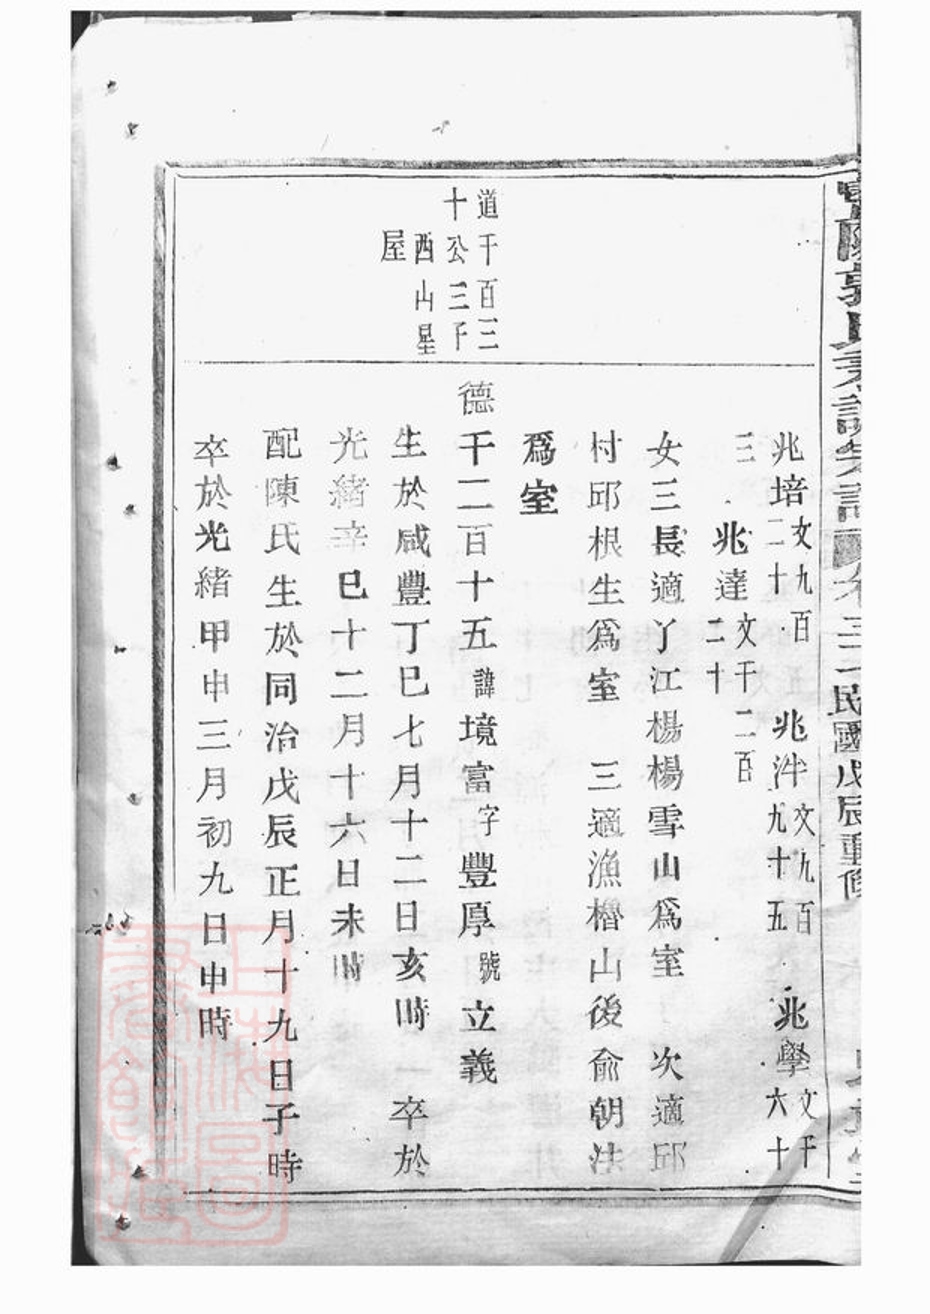 民國戊辰重修
兆培文九百二十 兆泮文九百九十五 兆學文千六十
三 兆達文千二百二十
女三長適丫江楊楊雪山爲室 次適邱
村邱根生爲室 三適漁櫓山後俞朝法
爲室
道千百三
十公三子
西山星
屋
德千二百十五諱境富字豐厚號立義
生於咸豐丁巳七月十二日亥時 卒於
光緒辛巳十二月十六日未時
配陳氏生於同治戊辰正月十九日子時
卒於光緒甲申三月初九日申時
上海圖書館藏